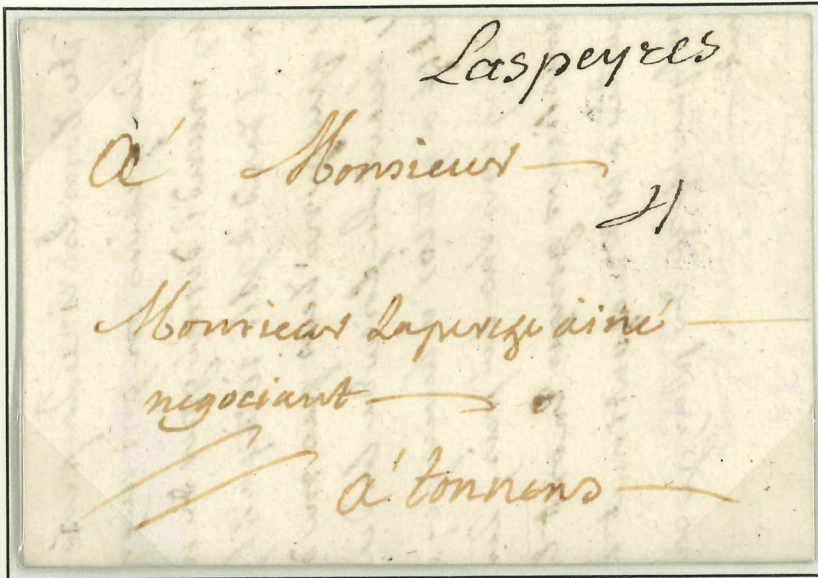 Laspeyres
à Monsieur
4
Monsieur ainé
negociant
à tonnens